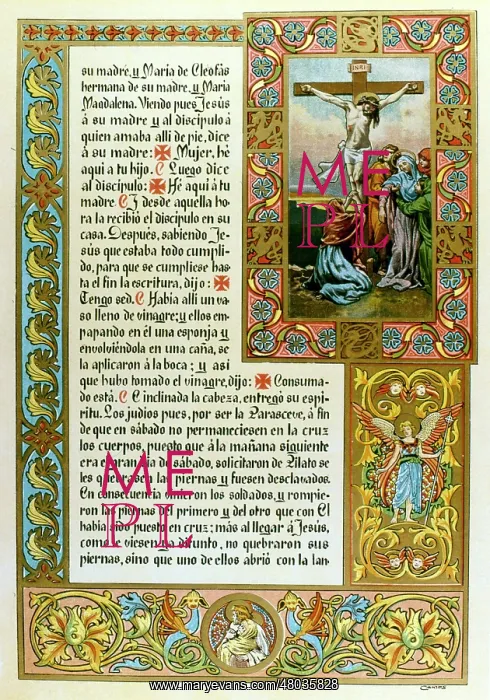 INRI
su madre, y María de Cleofás
hermana de su madre, y María
Magdalena. Viendo pues Jesús
á su madre y al discípulo á
quien amaba allí de pie, dice
á su madre: ✠ Mujer, hé
aquí a tu hijo. C Luego dice
al discípulo: ✠ Hé aquí á tu
madre C Y desde aquella ho-
ra la recibió el discípulo en su
casa. Después, sabiendo Je-
sús que estaba todo cumpli-
do, para que se cumpliese has-
ta el fin la escritura, dijo: ✠
Tengo sed. C Había allí un va-
so lleno de vinagre; y ellos em-
papando en él una esponja y
envolviéndola en una caña, se
la aplicaron á la boca; y así
que hubo tomado el vinagre, dijo: ✠ Consuma-
do está. C E inclinada la cabeza, entregó su espi-
ritu. Los judios pues, por ser la Parasceve, á fin
de que en sábado no permaneciesen en la cruz
los cuerpos, puesto que á la mañana siguiente
era gran día de sábado, solicitaron de Pilato se
les quebrasen las piernas y fuesen desclavados.
En consecuencia vinieron los soldados, y rompie-
ron las piernas al primero y del otro que con El
había sido puesto en cruz; más al llegar á Jesús,
como le viesen ya difunto, no quebraron sus
piernas, sino que uno de ellos abrió con la lan-
ME
PL
ME
PL
www.maryevans.com/48035828